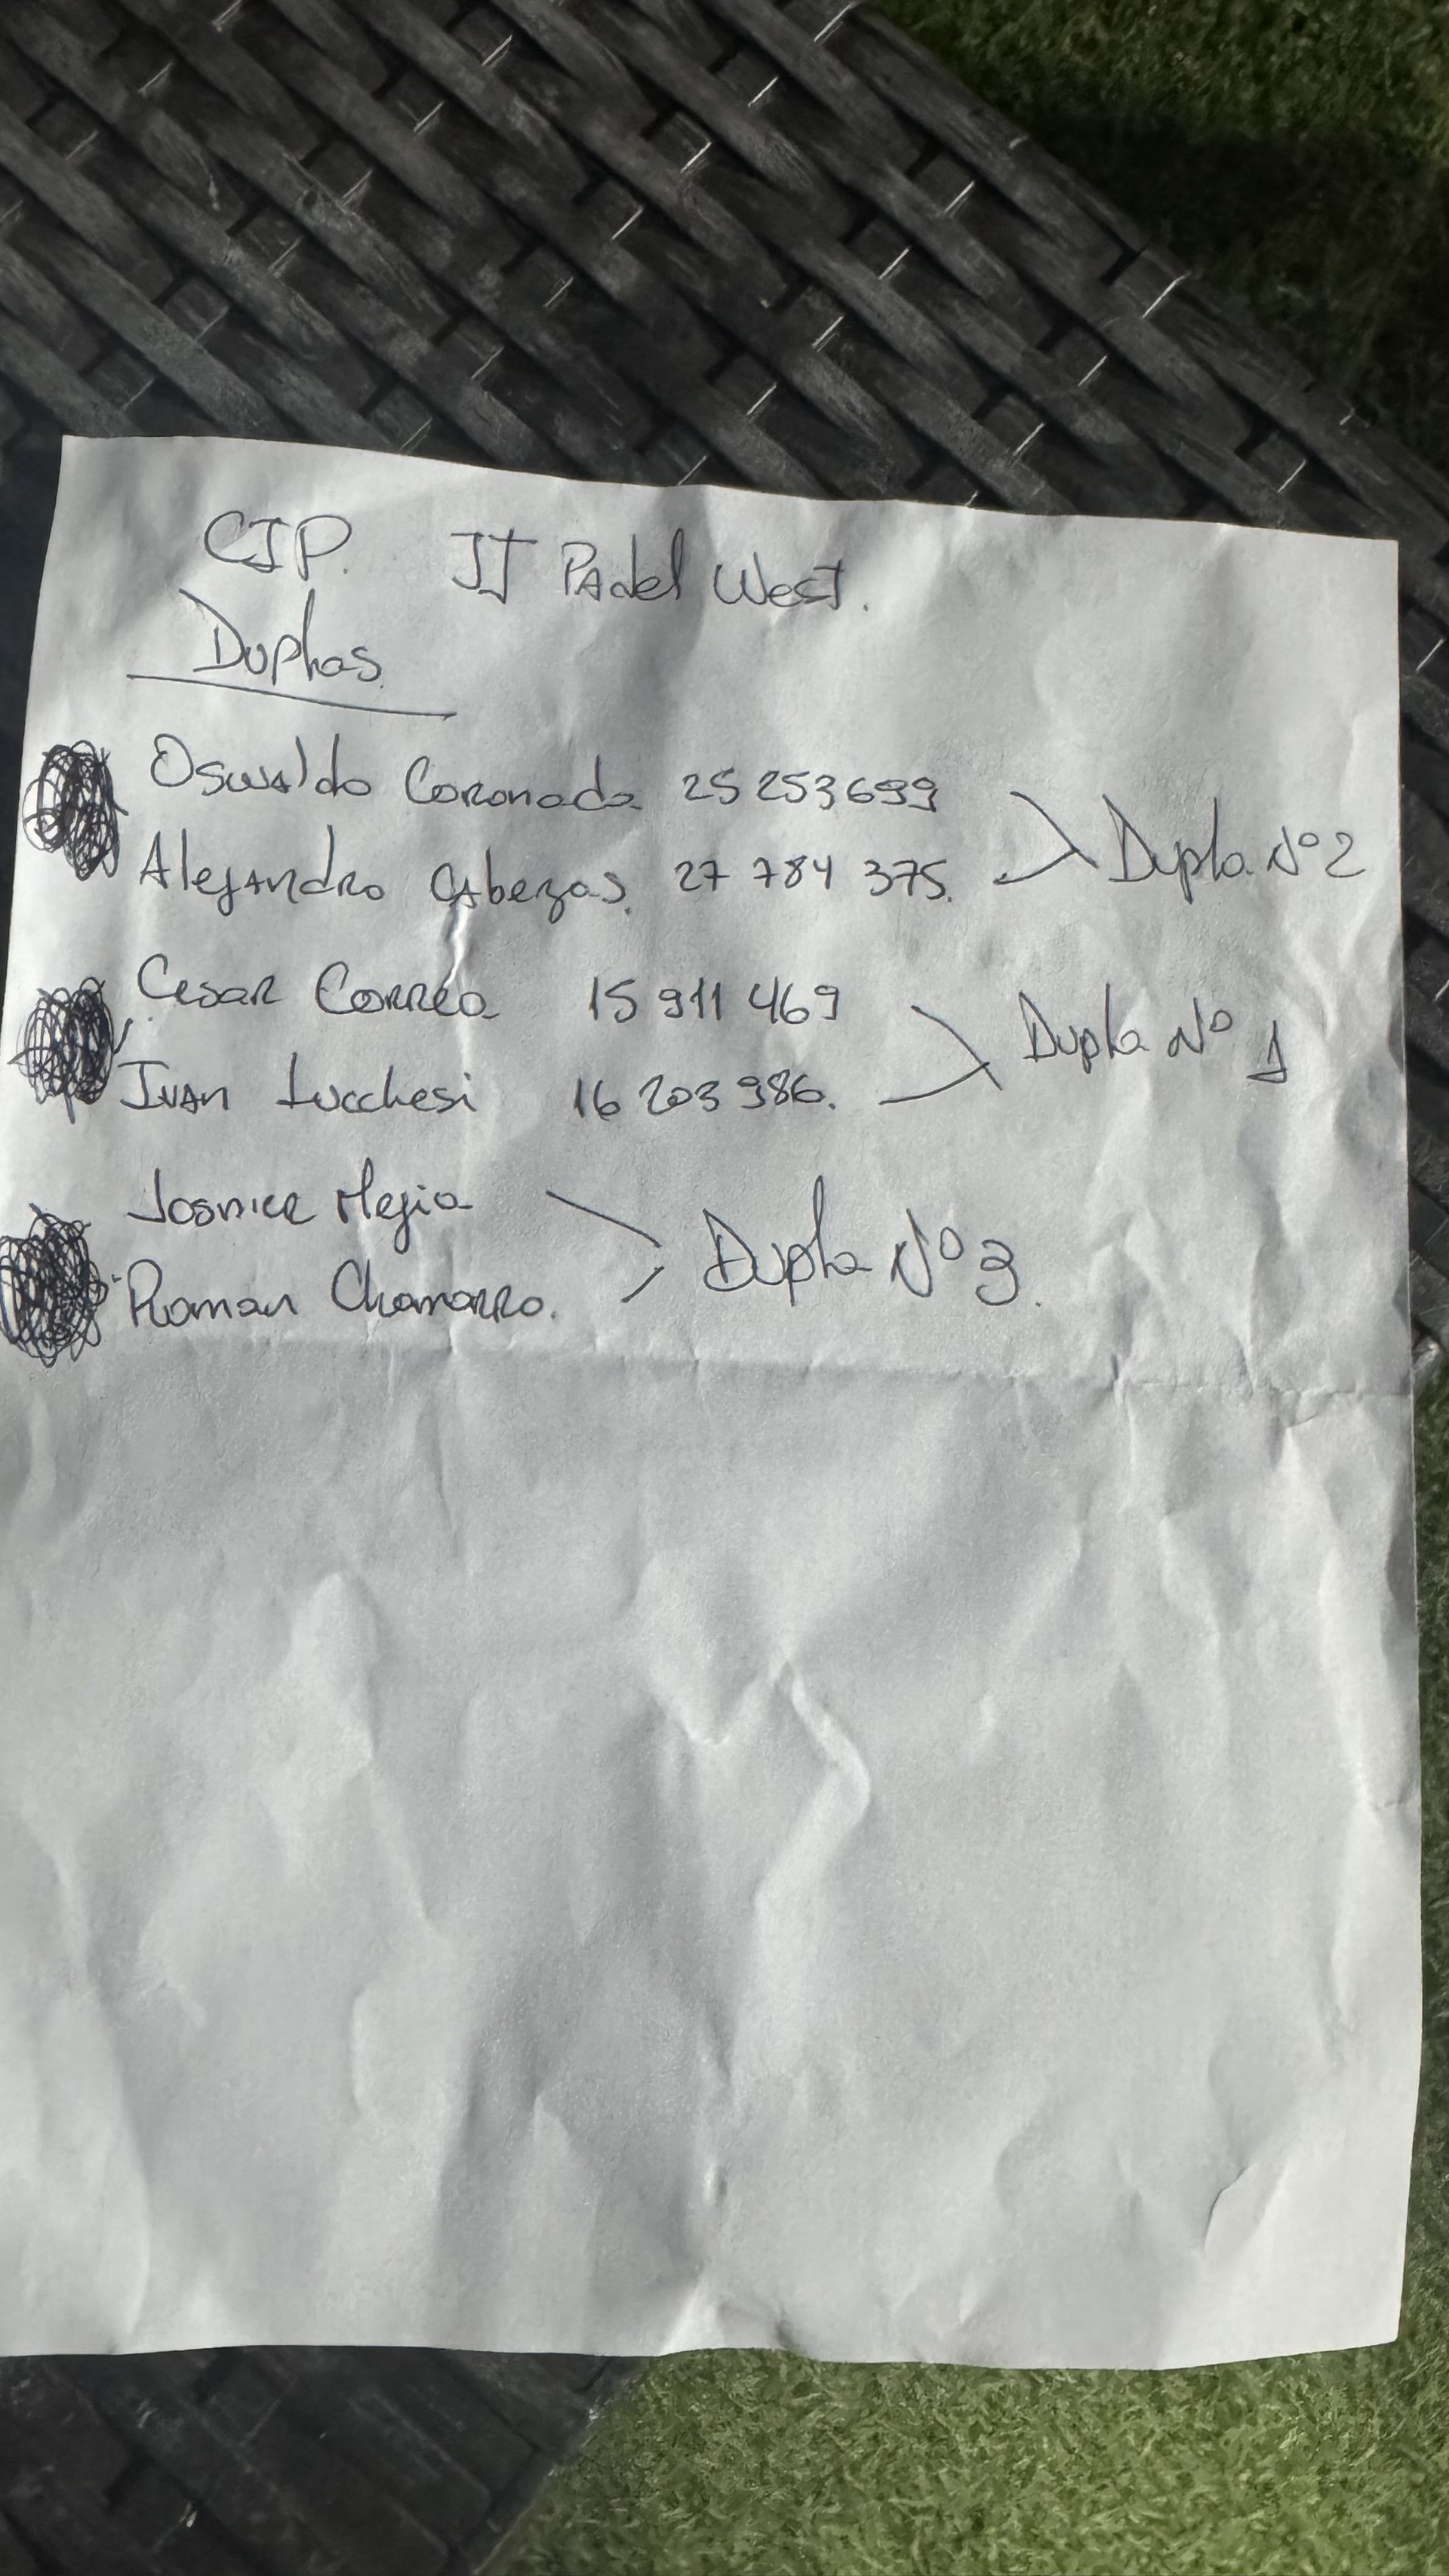 CIP. JJ Padel West.
Duplas
Oswaldo Coronado 25253699
Alejandro Cabezas. 27 784 375. Dupla Nº 2
Cesar Correa 15 911 469
Dupla Nº 1
Ivan Lucchesi 16 203 986.
Josnier Mejia
Dupla Nº 3.
Roman Chamorro.